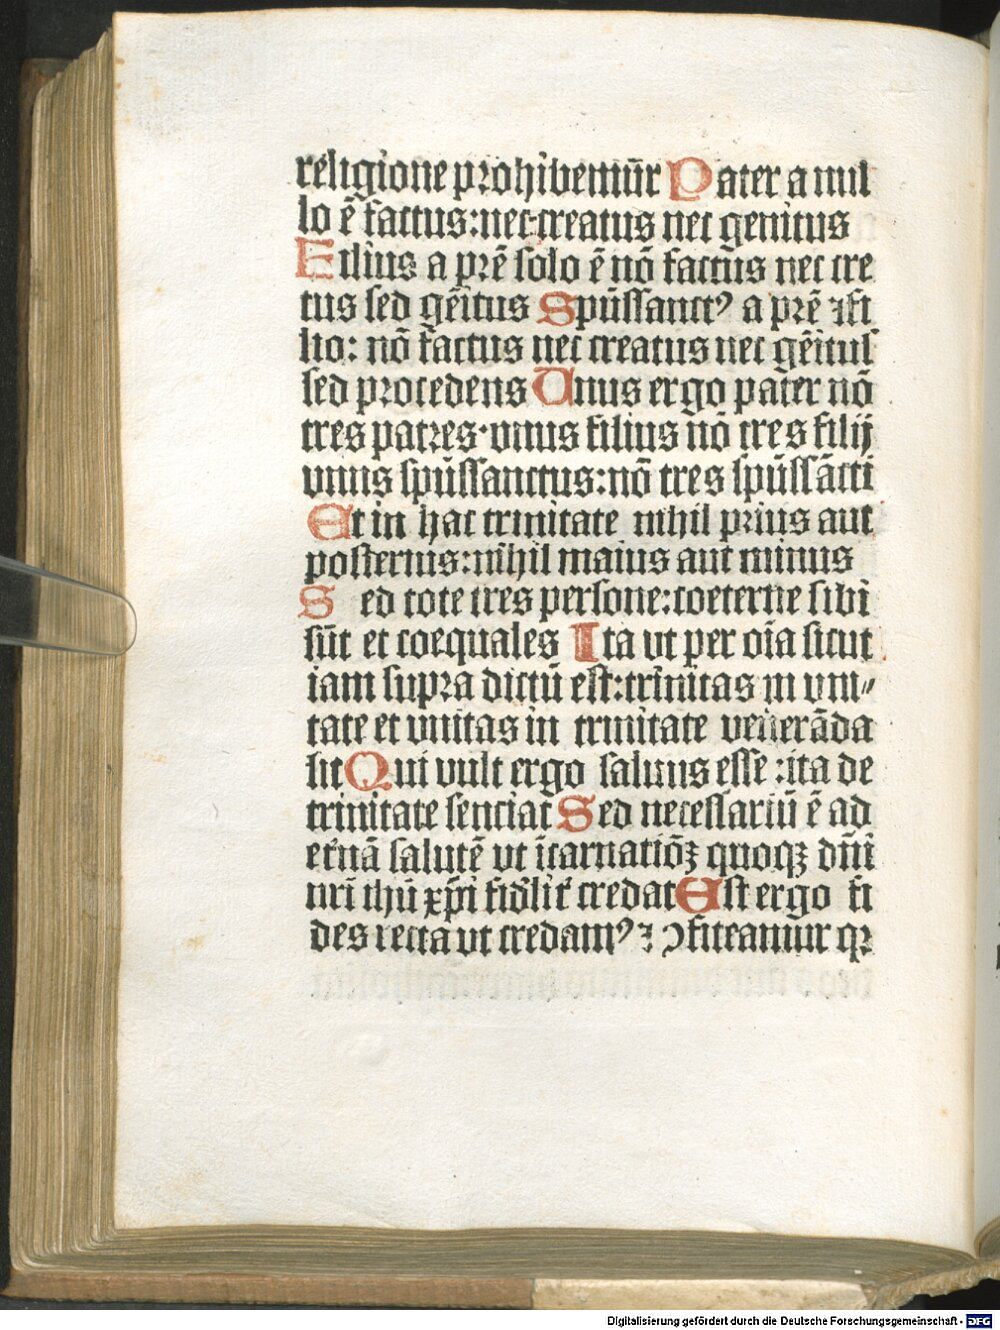 religione prohibemur̄ Pater a nul
lo ē factus: nec creatus nec genitus
Filius a prē solo ē nō factus nec cre
tus sed gēitus Spūssanctꝰ a prē ⁊ fi
lio: nō factus nec creatus nec gēitus
sed procedens Unus ergo pater nō
tres patres·vnus filius nō tres filij
vnus spūssanctus: nō tres spūssācti
Et in hac trinitate nihil prius aut
posterius: nihil maius aut minus
Sed tote tres persone: coeterne sibi
sūt et coequales Ita ut per oīa sicut
iam supra dictū est: trinitas in vni⸗
tate et vnitas in trinitate venerāda
sit Qui vult ergo saluus esse : ita de
trinitate senciat Sed necessariū ē ad
et̄nā salutē vt īcarnatiōꝫ quoqꝫ dn̄i
nrī ihū xp̄i fid̄lit̄ credat Est ergo fi
des recta vt credamꝰ ⁊ ↄfiteamur qꝛ
Digitalisierung gefördert durch die Deutsche Forschungsgemeinschaft - DFG